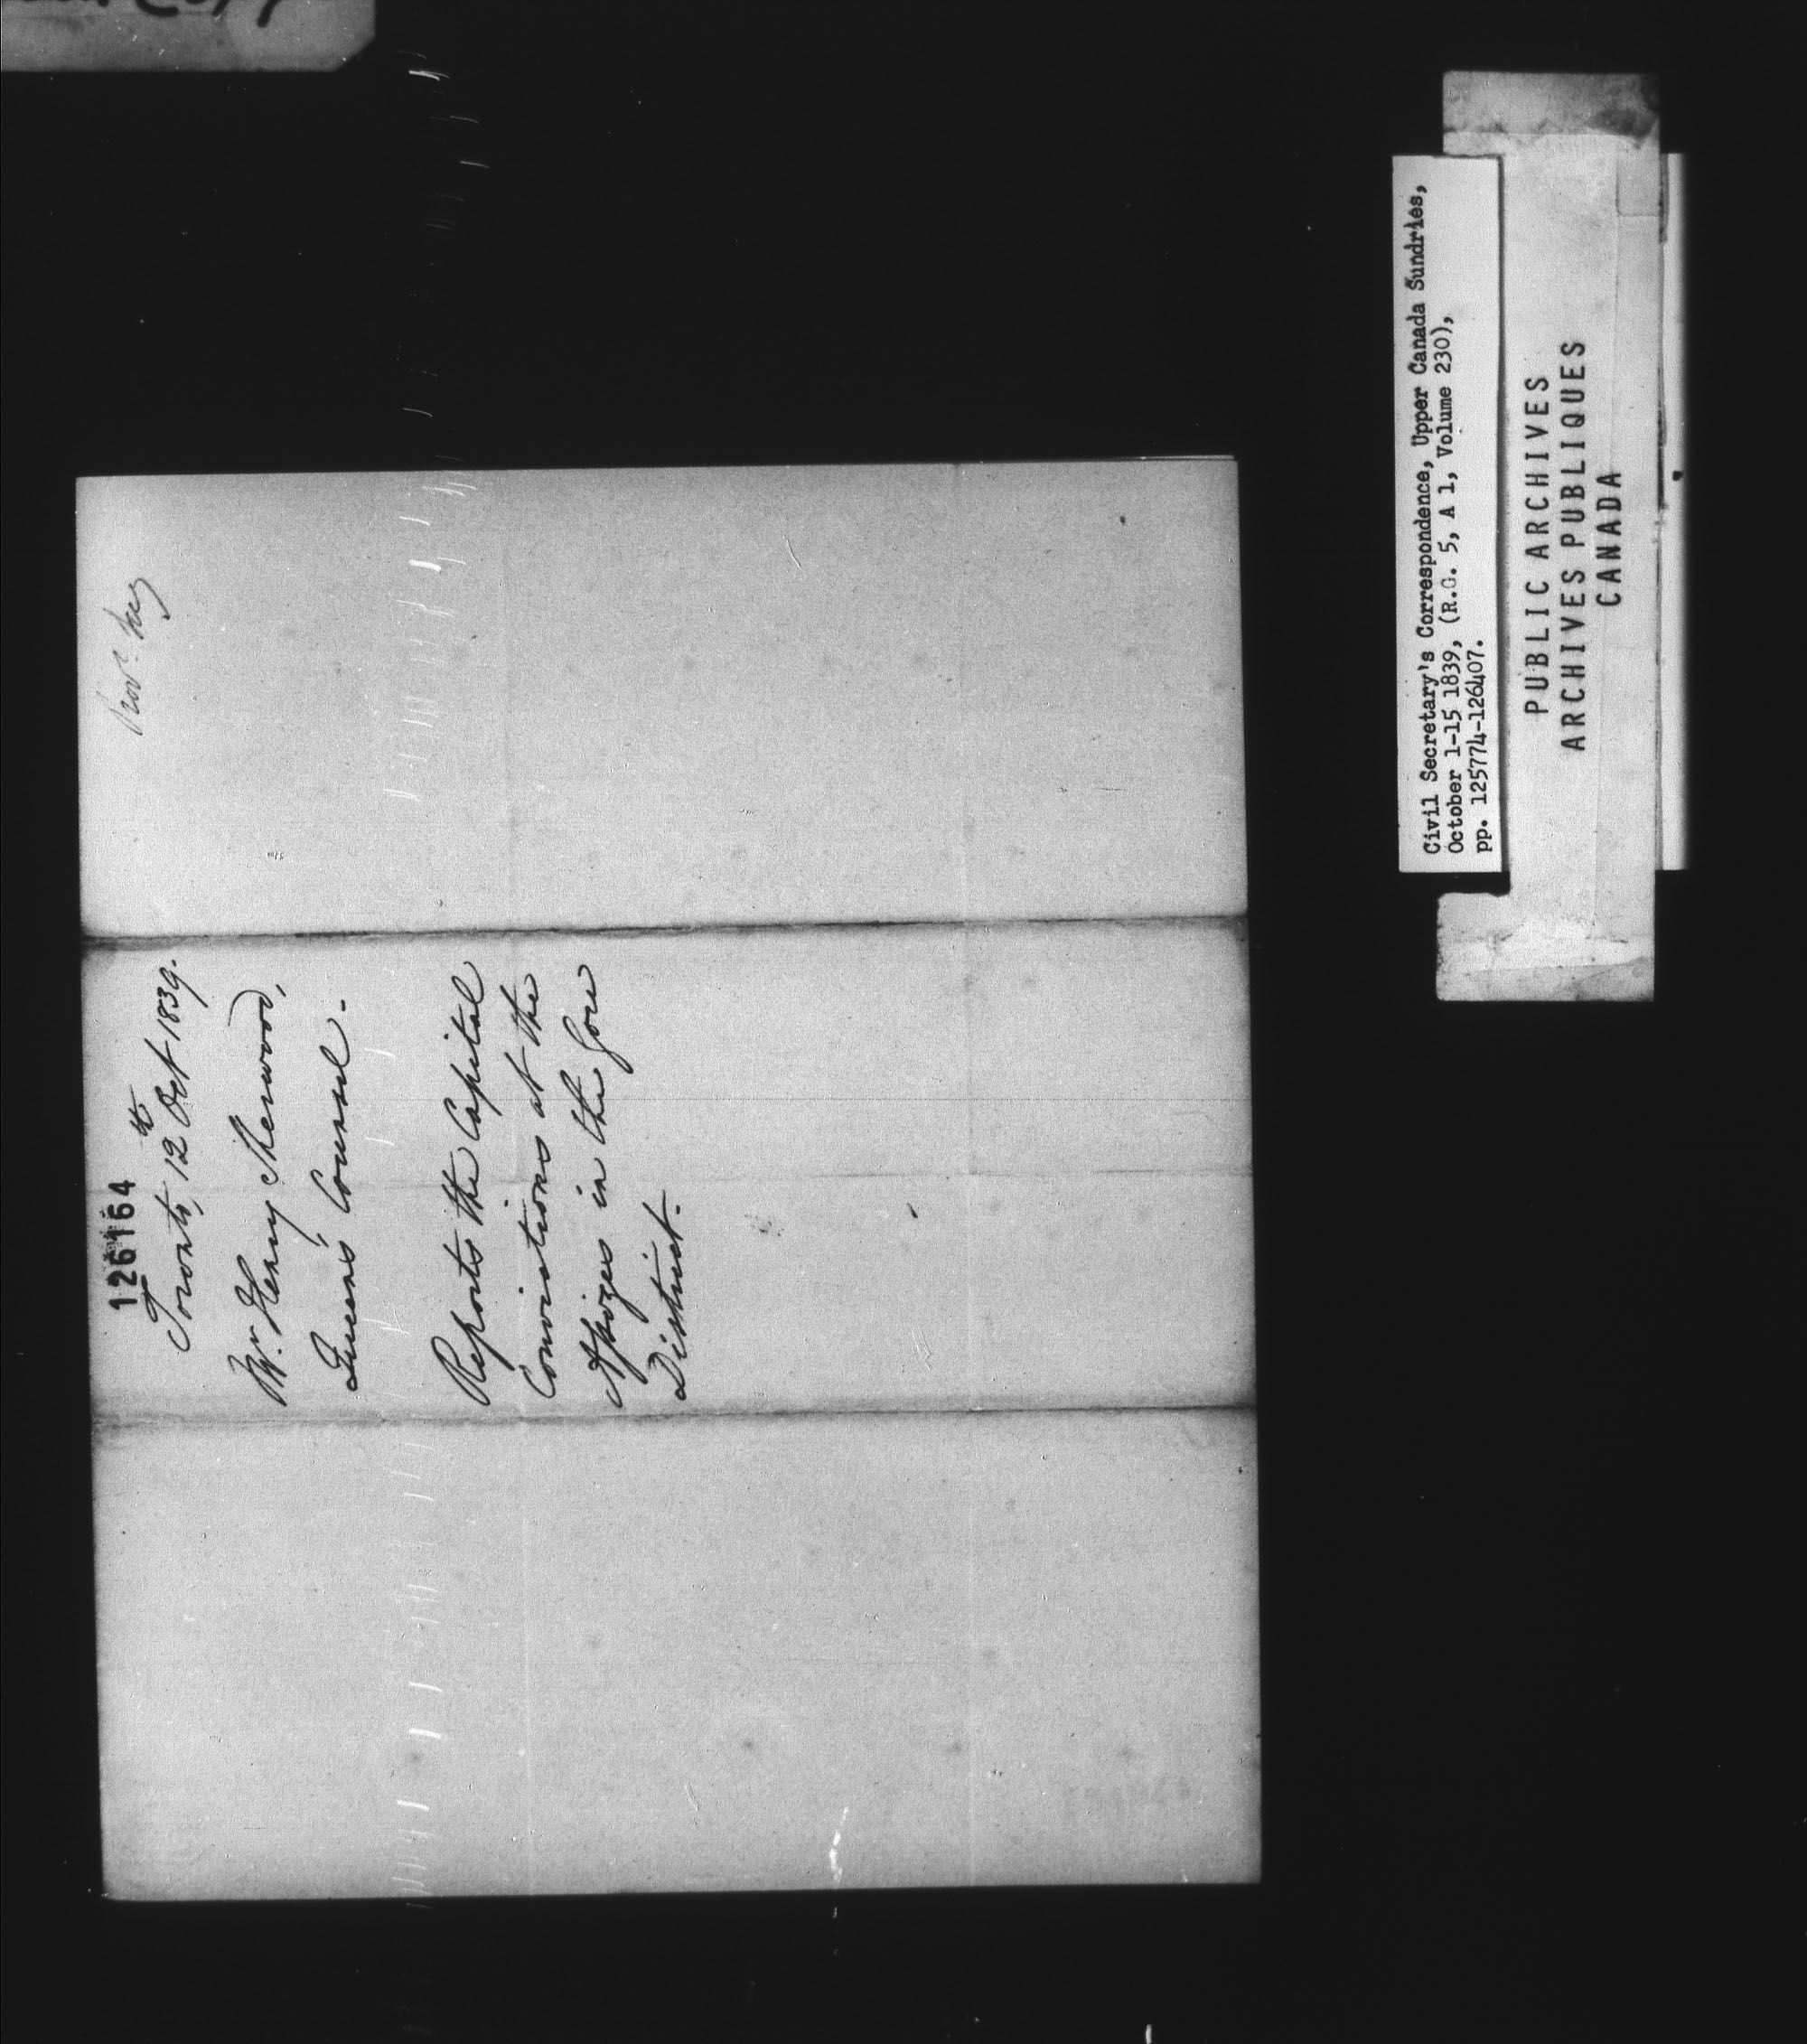 126164
Toronto, 12th Oct 1839.
Mr. Henry Sherwood,
Queen's Counsel.
Reports the Capital
Convictions at the
Assizes in the Gore
District.
Civil Secretary's Correspondence, Upper Canada Sundries,
October 1-15 1839, (R.G. 5, A 1, Volume 230),
pp. 125774-126407.
PUBLIC ARCHIVES
ARCHIVES PUBLIQUES
CANADA